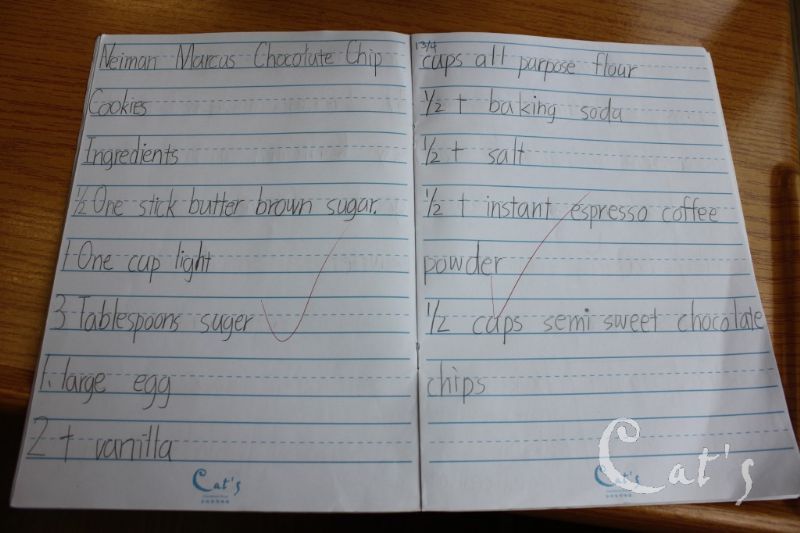 Neiman Marcus Chocolute Chip
Cookies
Ingredients
½ One stick butter brown sugar.
1 One cup light
3 Tablespoons suger
1. large egg
2 t vanilla
Cat's
1 3/4
cups all purpose flour
1/2 t baking soda
1/2 t salt
1/2 t instant espresso coffee
powder
1/2 cups semi sweet chocolate
chips
Cat's
Cat's